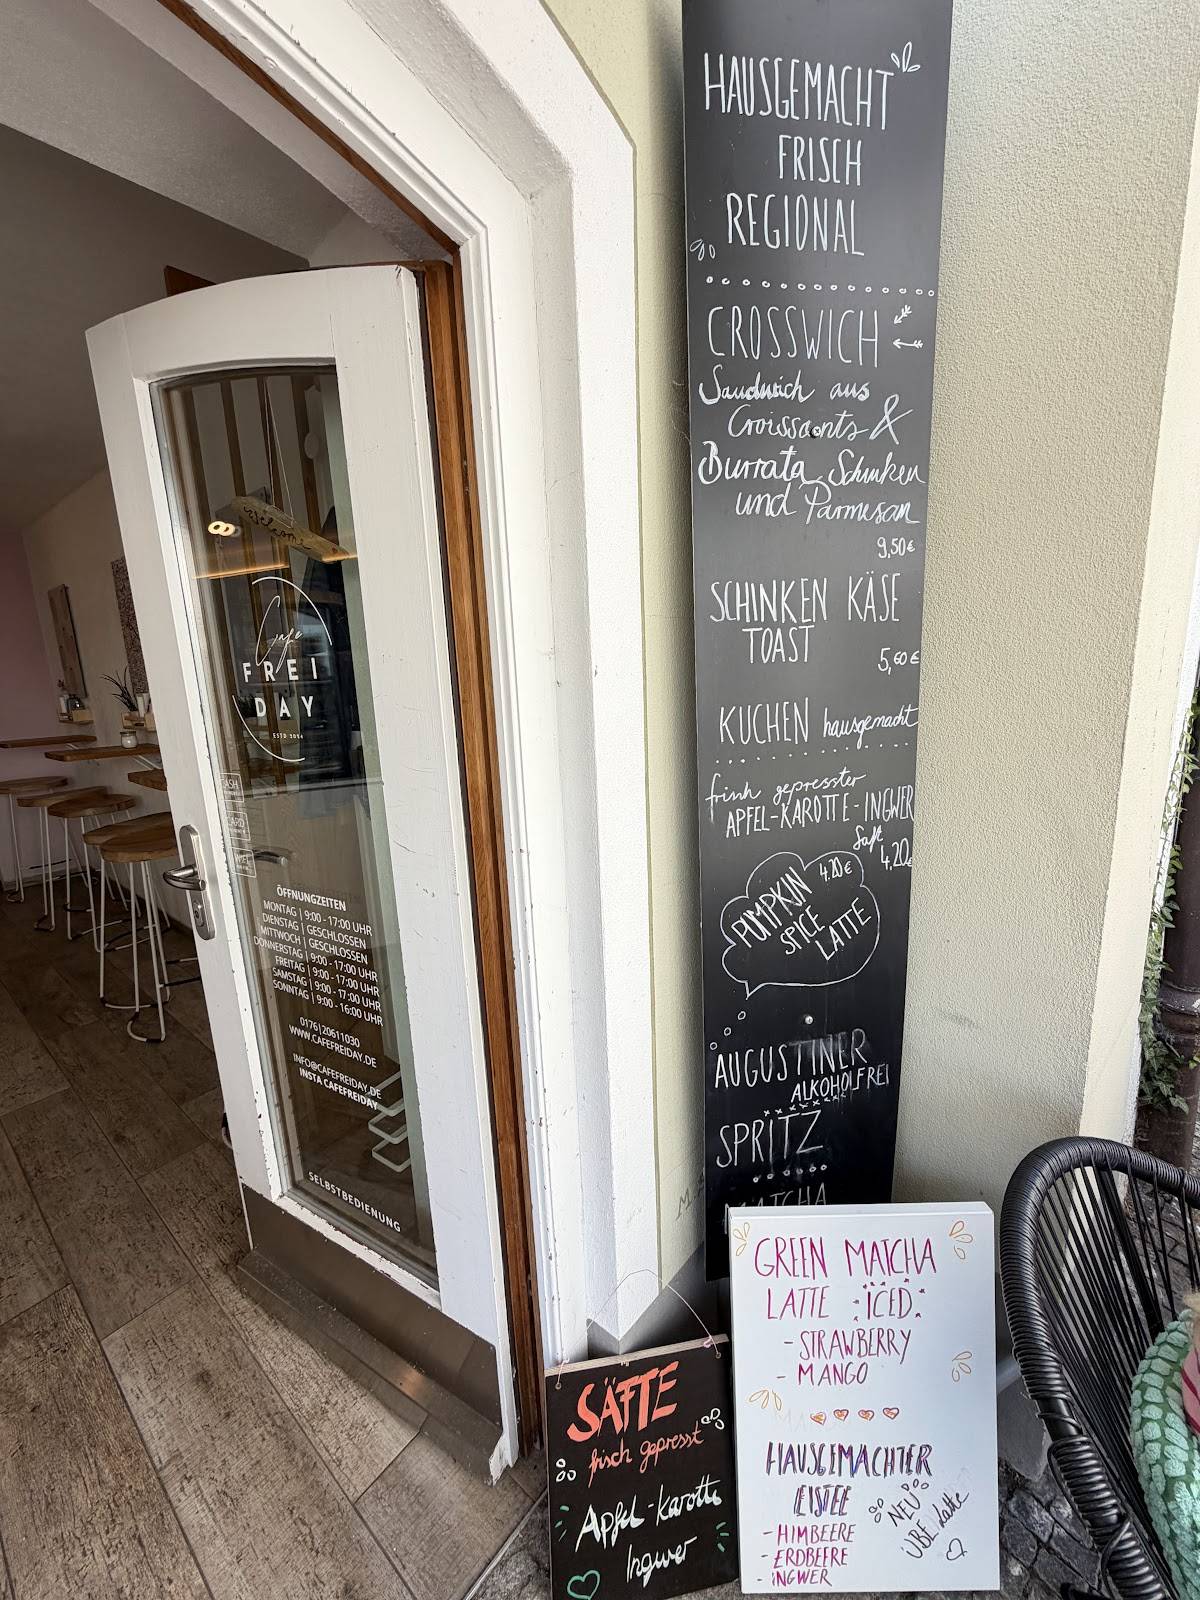 Welcome
Cafe
FREI
DAY
ESTD 2014
CASH
CARD
ÖFFNUNGZEITEN
MONTAG | 9:00 - 17:00 UHR
DIENSTAG | GESCHLOSSEN
MITTWOCH | GESCHLOSSEN
DONNERSTAG | 9:00 - 17:00 UHR
FREITAG | 9:00 - 17:00 UHR
SAMSTAG | 9:00 - 17:00 UHR
SONNTAG | 9:00 - 16:00 UHR
0176|20611030
WWW.CAFEFREIDAY.DE
INFO@CAFEFREIDAY.DE
INSTA CAFEFREIDAY
SELBSTBEDIENUNG
HAUSGEMACHT
FRISCH
REGIONAL
CROSSWICH
Sandwich aus
Croissants &
Burrata, Schinken
und Parmesan
9,50€
SCHINKEN KÄSE
TOAST
5,60€
KUCHEN hausgemacht
frisch gepresster
APFEL-KAROTTE-INGWER
Saft
4,20€
4.20€
PUMPKIN
SPICE
LATTE
AUGUSTINER
ALKOHOLFREI
SPRITZ
MATCHA
SÄFTE
frisch gepresst
Apfel-Karotte
Ingwer
GREEN MATCHA
LATTE ICED
- STRAWBERRY
- MANGO
HAUSGEMACHTER
EISTEE
- HIMBEERE
- ERDBEERE
- INGWER
NEU
ÜBE Latte